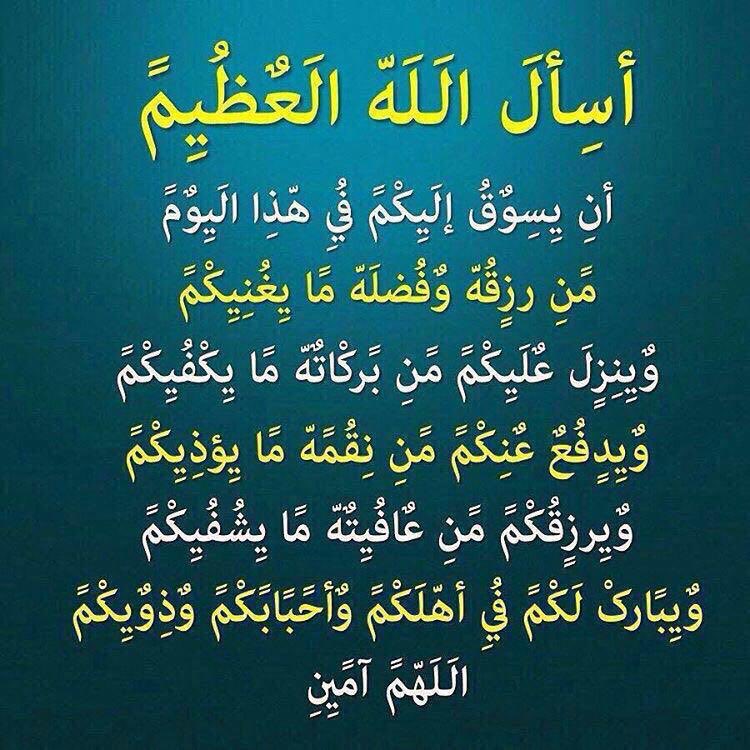 أسِألَ الَلَهّ الَعٌظُيِمً
أنِ يِسِوٌقُ إلَيِكْمً فُيِ هّذِا الَيِوٌمً
مًنِ رزٍقُهّ وٌفُضلَهّ مًا يِغُنِيِكْمً
وٌيِنِزٍلَ عٌلَيِكْمً مًنِ بًركْاتٌهّ مًا يِكْفُيِكْمً
وٌيِدٍفُعٌ عٌنِكْمً مًنِ نِقُمًهّ مًا يِؤذِيِكْمً
وٌيِرزٍقُكْمً مًنِ عٌافُيِتٌهّ مًا يِشُفُيِكْمً
وٌيِبًارکْ لَكْمً فُيِ أهّلَكْمً وٌأحًبًابًكْمً وٌذِوٌيِكْمً
الَلَهّمً آمًيِنِ